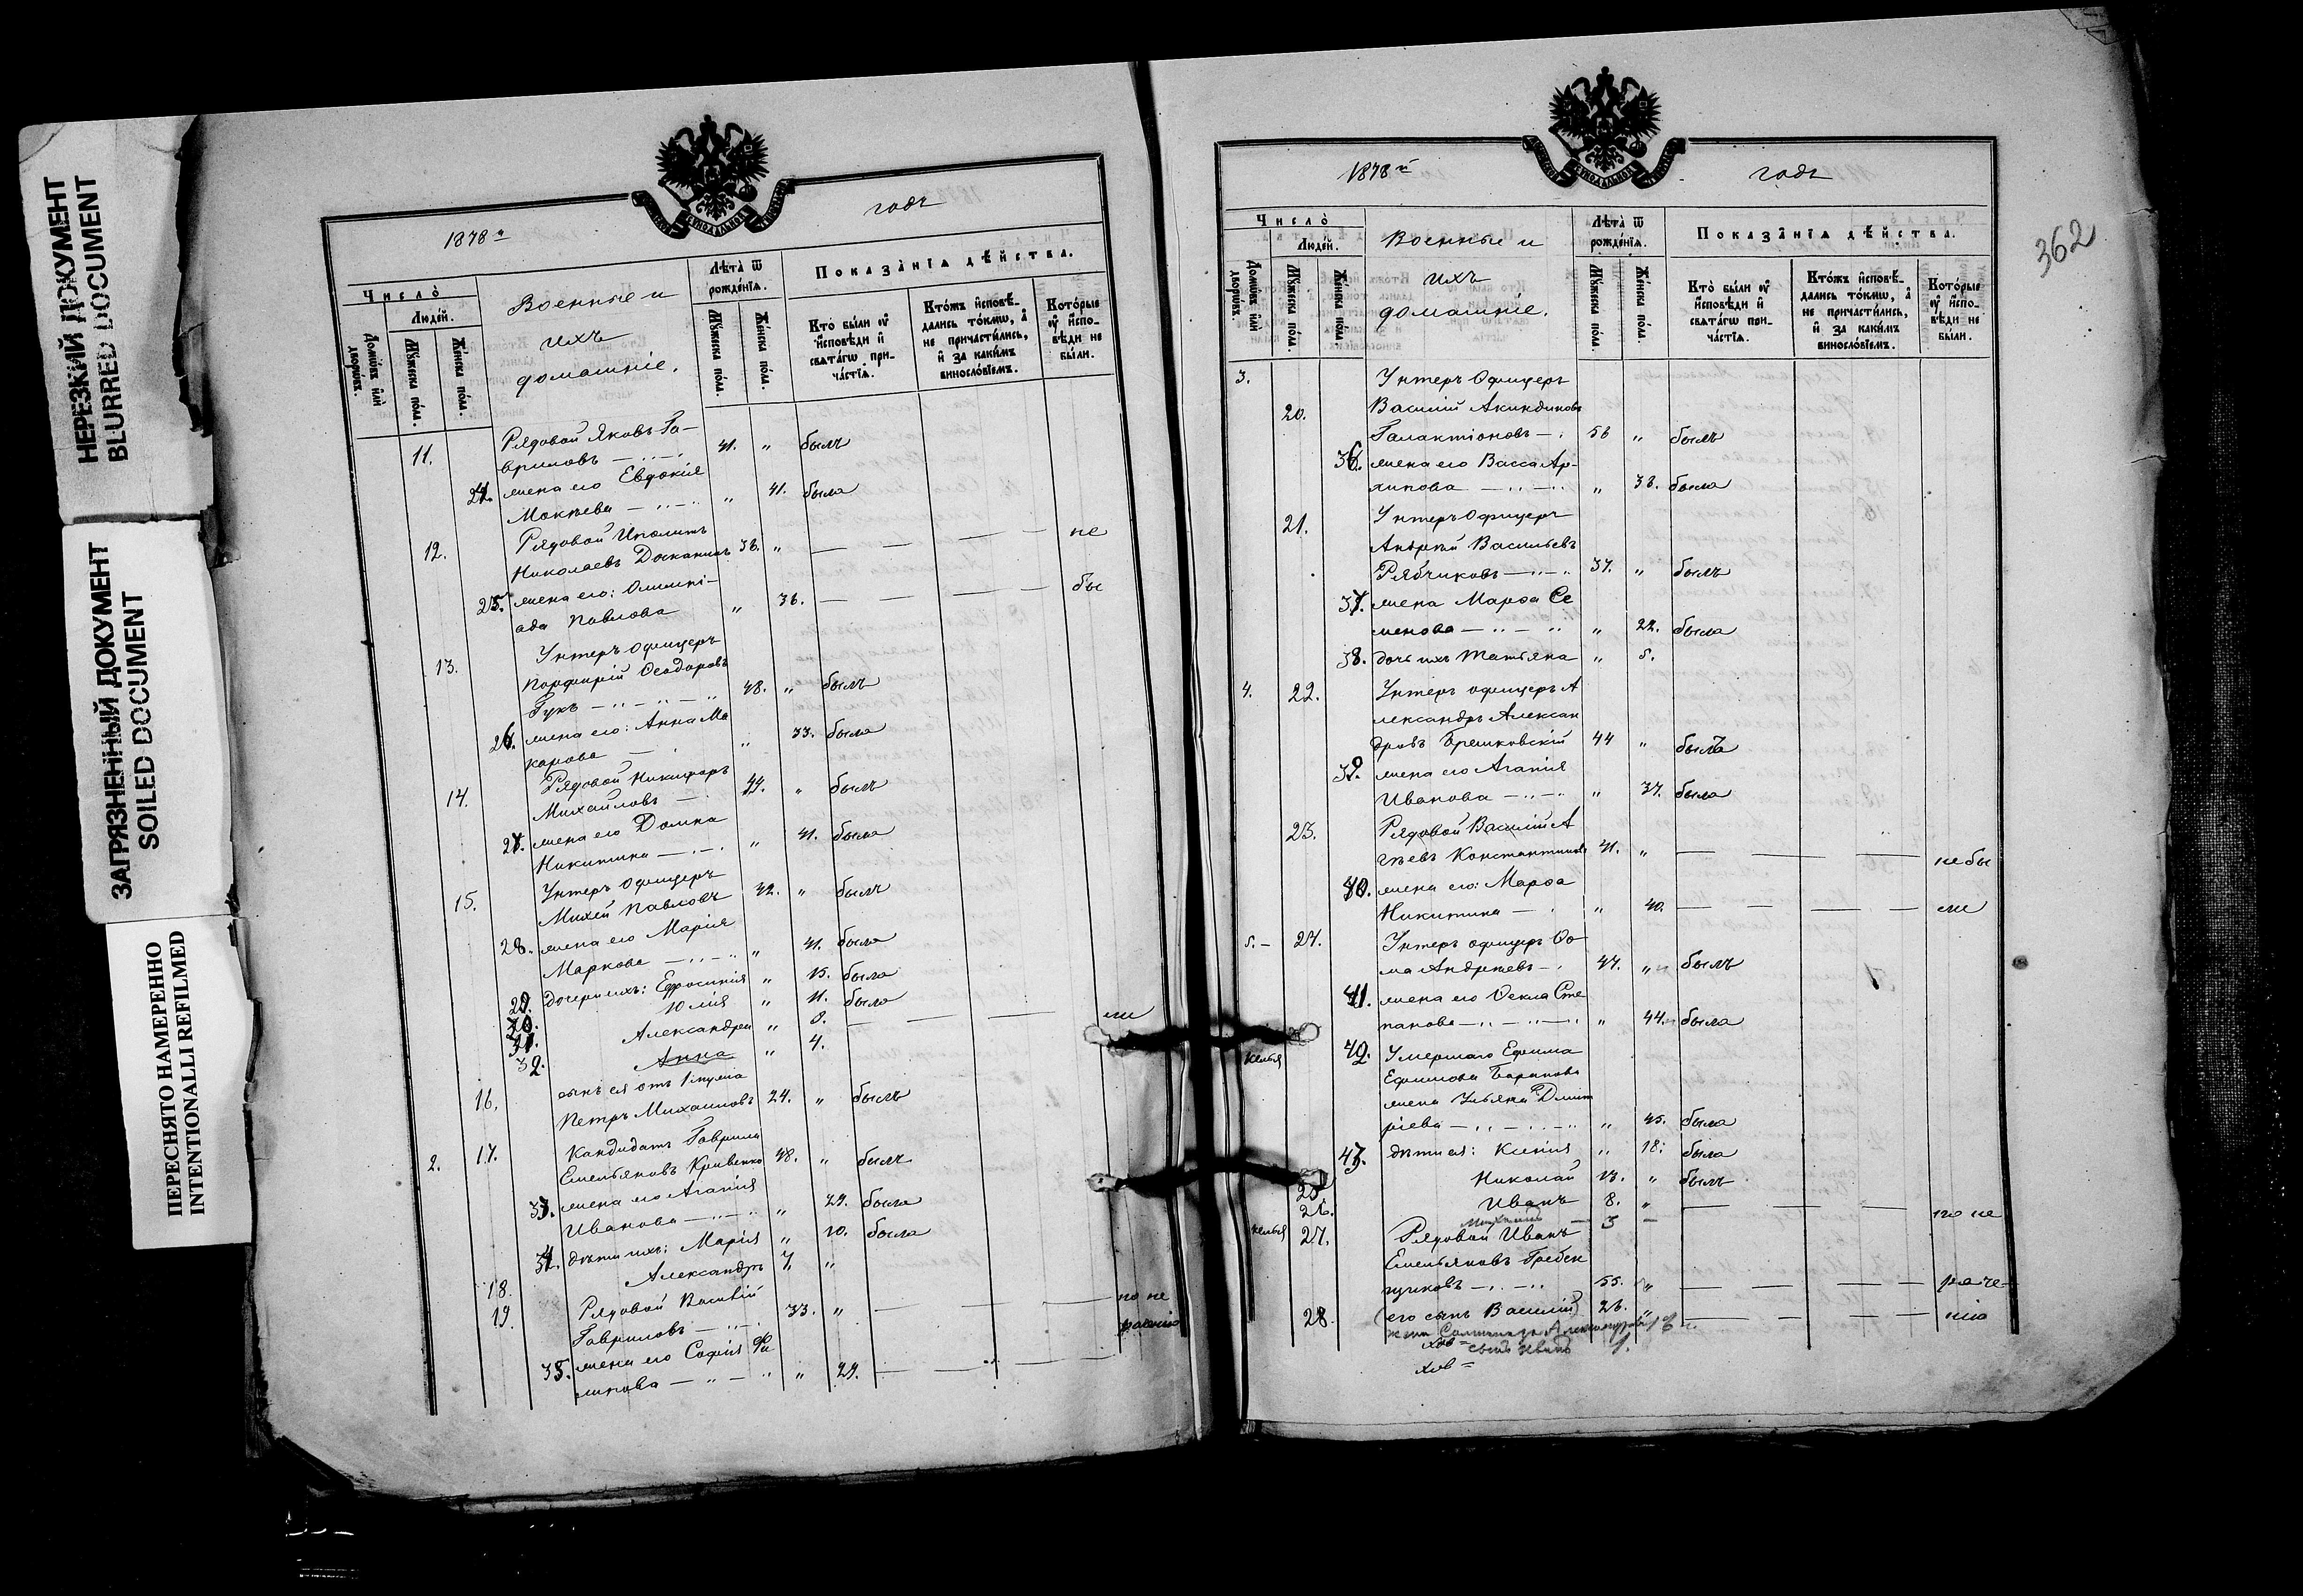 НЕРЕЗКИЙ ДОКУМЕНТ
BLURRED DOCUMENT
ЗАГРЯЗНЕННЫЙ ДОКУМЕНТ
SOILED DOCUMENT
ПЕРЕСНЯТО НАМЕРЕННО
INTENTIONALLI REFILMED
1878 годъ
Число̀
Людей.
Домѡвъ или дворѡвъ.
Мꙋжеска пола.
Женска пола.
Военные и
ихъ
домашніе.
Лѣта̀ ѿ
рожденїѧ.
Мꙋжеска пола.
Женска пола.
Показа̑нїѧ дѣйства.
Кто̀ были ᲂу҆
и҆сповѣди и҆
свѧтагѡ при-
частїѧ.
Ктожъ и҆сповѣ-
дались токмѡ, а҆
не причастились,
и҆ за какимъ
винословїемъ.
Которые
ᲂу҆ и҆спо-
вѣди не
были.
11. Рядовой Яковъ Га-
вриловъ 41. " былъ
24. жена его Евдокія
Мокѣева " 41. была
12. Рядовой Иполитъ
Николаевъ 36. " не
25. жена его: Олимпі-
ада Павлова " 36. бы
13. Унтеръ офицеръ
Порфирій Ѳеодоровъ
Гукъ 48. " былъ
26. жена его: Анна Ма
карова " 33. была
14. Рядовой Никифоръ
Михайловъ 44. " былъ
27. жена его Домна
Никитина " 41. была
15. Унтеръ Офицеръ
Михей Павловъ 42. " былъ
28. жена его Марія
Маркова " 41. была
29. дочери ихъ: Ефросинія " 15. была
30. Юлія " 11. была
31. Александра " 8. ли
32. Анна " 4.
16. сынъ ея отъ 1
Петръ Михаиловъ 24. " былъ
2. 17. Кандидатъ Гаврила
Емельяновъ Кривенко 48. " былъ
33. жена его Агапія
Иванова " 29. была
34. дѣти ихъ: Марія " 10. была
18. Александръ 7. "
19. Рядовой Василій
Гавриловъ 33. " по не
раченію
35. жена его Софія Фи
липова " 29.
362
1878й годъ
Число̀
Людей.
Домѡвъ или дворѡвъ.
Мꙋжеска пола.
Женска пола.
Военные и
ихъ
домашніе.
Лѣта̀ ѿ
рожденїѧ.
Мꙋжеска пола.
Женска пола.
Показа̑нїѧ дѣйства.
Кто̀ были ᲂу҆
и҆сповѣди и҆
свѧтагѡ при-
частїѧ.
Ктожъ и҆сповѣ-
дались токмѡ, а҆
не причастились,
и҆ за какимъ
винословїемъ.
Которые
ᲂу҆ и҆спо-
вѣди не
были.
3. Унтеръ Офицеръ
20. Василій Акиндиновъ
Галактіоновъ 56 " былъ
36. жена его Васса Ар-
хипова " 38. была
21. Унтеръ Офицеръ
Андрей Васильевъ
Рябчиковъ 37. " былъ
37. жена Марѳа Се
менова " 22. была
38. дочь ихъ Татьяна " 5.
4. 22. Унтеръ офицеръ А
лександръ Алексан
дровъ Брешковскій 44 " былъ
39. жена его Агапія
Иванова " 37. была
23. Рядовой Василій А
гѣевъ Константинов 41. " не бы
40. жена его: Марѳа
Никитина " 40. ли
5. 24. Унтеръ офицеръ Ѳо-
ма Андреевъ 47. " былъ
41. жена его Ѳекла Сте
панова " 44. была
келья 42. Умершаго Ефима
Ефимова Баранова
жена Ульяна Дмит
ріева " 45. была
43. дѣти ея: Ксенія " 18. была
25. Николай 13. " былъ
26. Иванъ 8. "
Михаилъ 3 по не
келья 27. Рядовой Иванъ
Емельяновъ Гребен
щиковъ 55. " раче-
28. (его сынъ Василій) 26. " нію
жена Александрова
сынъ Иванъ 1.